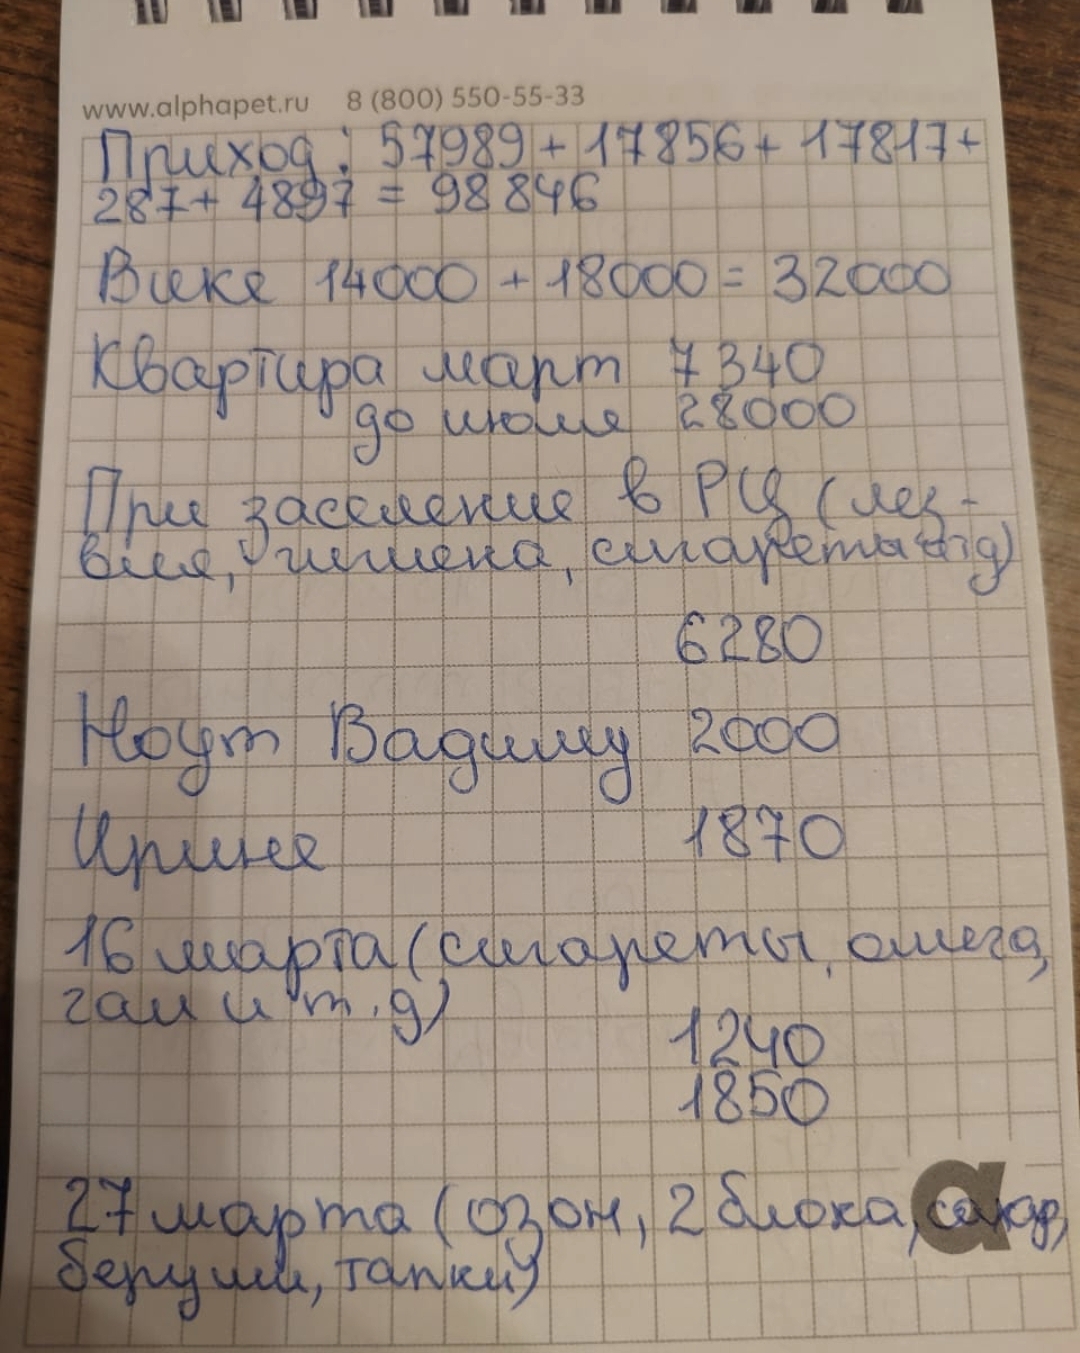 www.alphapet.ru 8 (800) 550-55-33
Приход: 57989 + 17856 + 17817 +
287 + 4897 = 98846
Вике 14000 + 18000 = 32000
Квартира март 7340
до июля 28000
При заселение в РЦ (лез-
вия, гигиена, сигареты и т д)
6280
Ноут Вадиму 2000
Ирине 1870
16 марта (сигареты, омега,
гам и т.д)
1240
1850
27 марта (озон, 2 блока, сахар,
беруши, тапки)